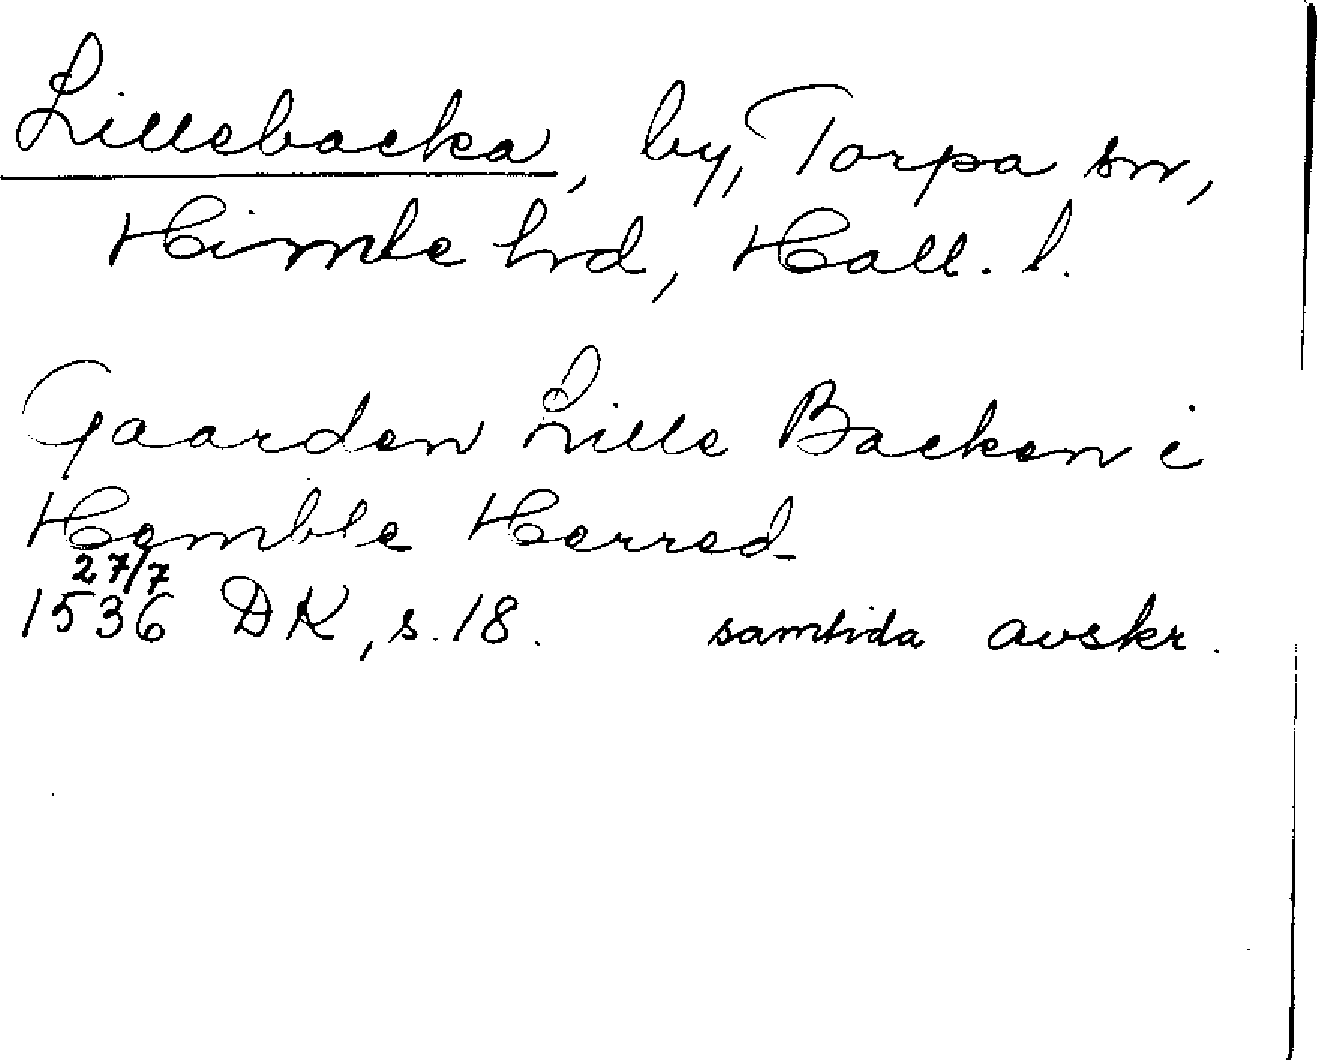 Lillebacka, by, Torpa sn,
Himle hrd, Hall. l.
Gaarden Lille Backen i
Hemble Herred
27/7
1536 DK, s. 18. samtida avskr.